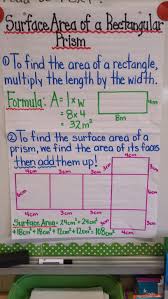 Surface Area of a Rectangular
Prism
① To find the area of a rectangle,
multiply the length by the width.
Formula: A = l × w
= 8 × 4
= 32m²
4m
8m
② To find the surface area of a
prism, we find the area of its faces
then add them up!
4cm
3cm
4cm
3cm
Surface Area = 24cm² + 24cm²
+ 18cm² + 18cm² + 12cm² + 12cm² = 108cm²